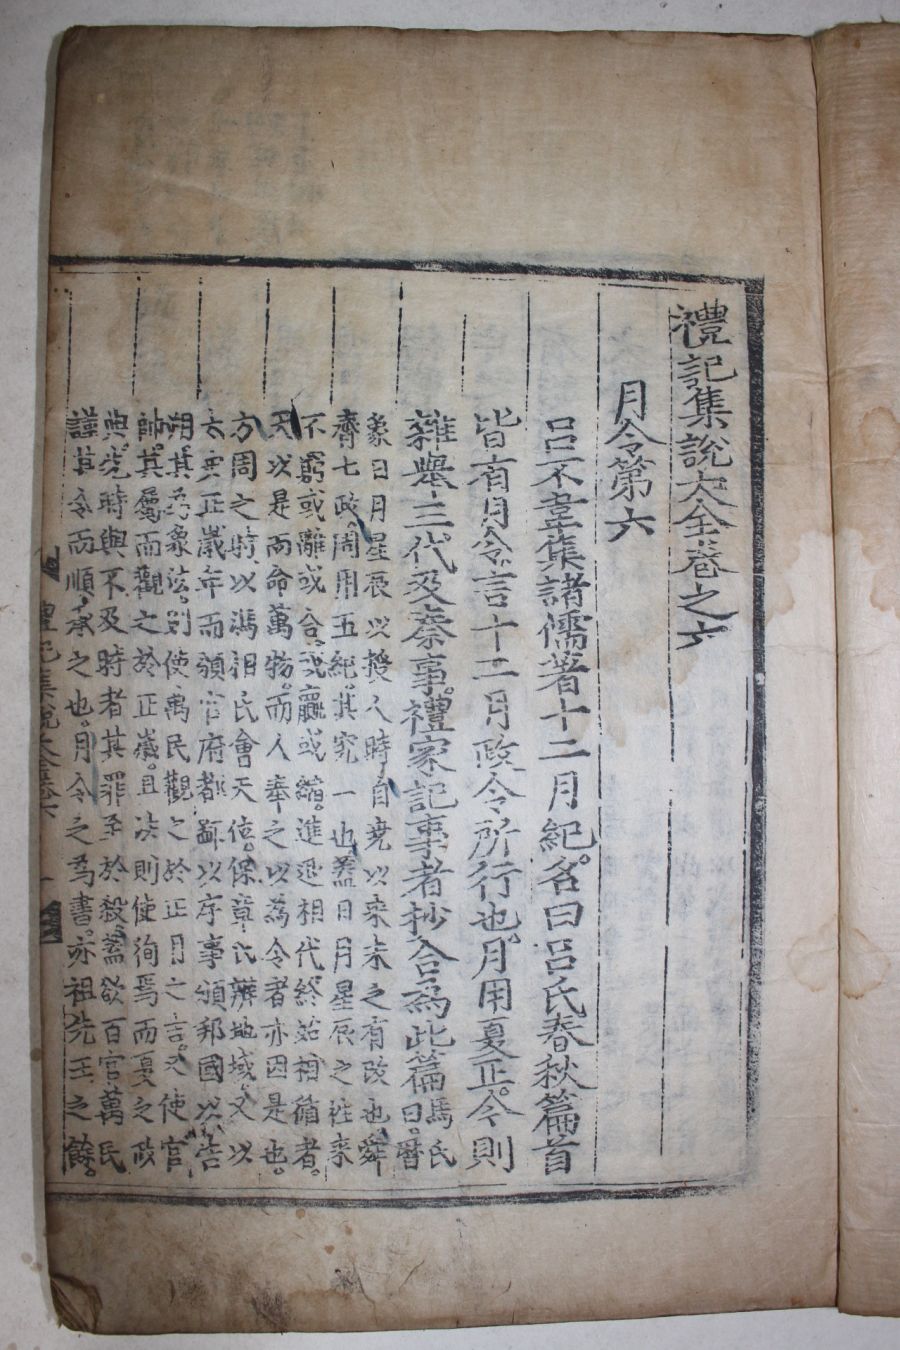 禮記集說大全卷之六
月令第六
呂不韋集諸儒著十二月紀。名曰呂氏春秋篇首
皆有月令。言十二月政令所行也。月用夏正。令則
雜舉三代及秦事。禮家記事者抄合爲此篇
馬氏
曰。曆
象日月星辰以授人時。自堯以來未之有改也。舜
齊七政。周用五紀。其究一也。蓋日月星辰之往來
不窮。或離或合。或贏或縮。進退相代。終始相循者。
天以是而命萬物。而人奉之以爲令者。亦因是也。
方周之時。以馮相氏會天位。保章氏辨地域。又以
太史正歲年而頒官府都鄙。以序事頒邦國。以告
朔。其爲象法。則使萬民觀之於正月之吉。又使官
帥其屬而觀之於正歲。且決則使徇焉而之政
典。先時與不及時者。其罪至於殺。蓋欲百官萬民
謹其令而順承之也。月令之爲書。亦祖先王之餘。
禮記集說大全卷六 一